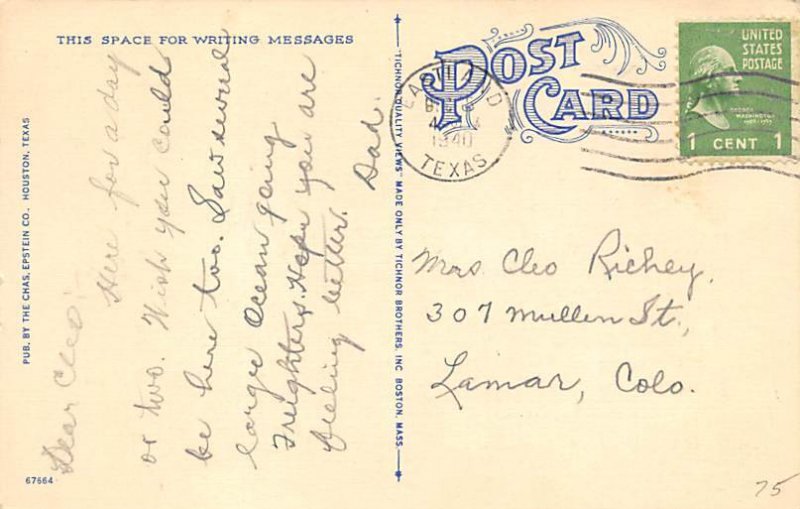 THIS SPACE FOR WRITING MESSAGES
Dear Cleo:
Here for a day
or two. Wish you could
be here too. Saw several
large Ocean going
Freighters. Hope you are
feeling better.
Dad.
PUB. BY THE CHAS. EPSTEIN CO. HOUSTON, TEXAS
67664
"TICHNOR QUALITY VIEWS" MADE ONLY BY TICHNOR BROTHERS, INC. BOSTON, MASS.
POST
CARD
1940
TEXAS
UNITED
STATES
POSTAGE
GEORGE
WASHINGTON
1 CENT 1
Mrs Cleo Richey,
307 Mullen St.,
Lamar, Colo.
75